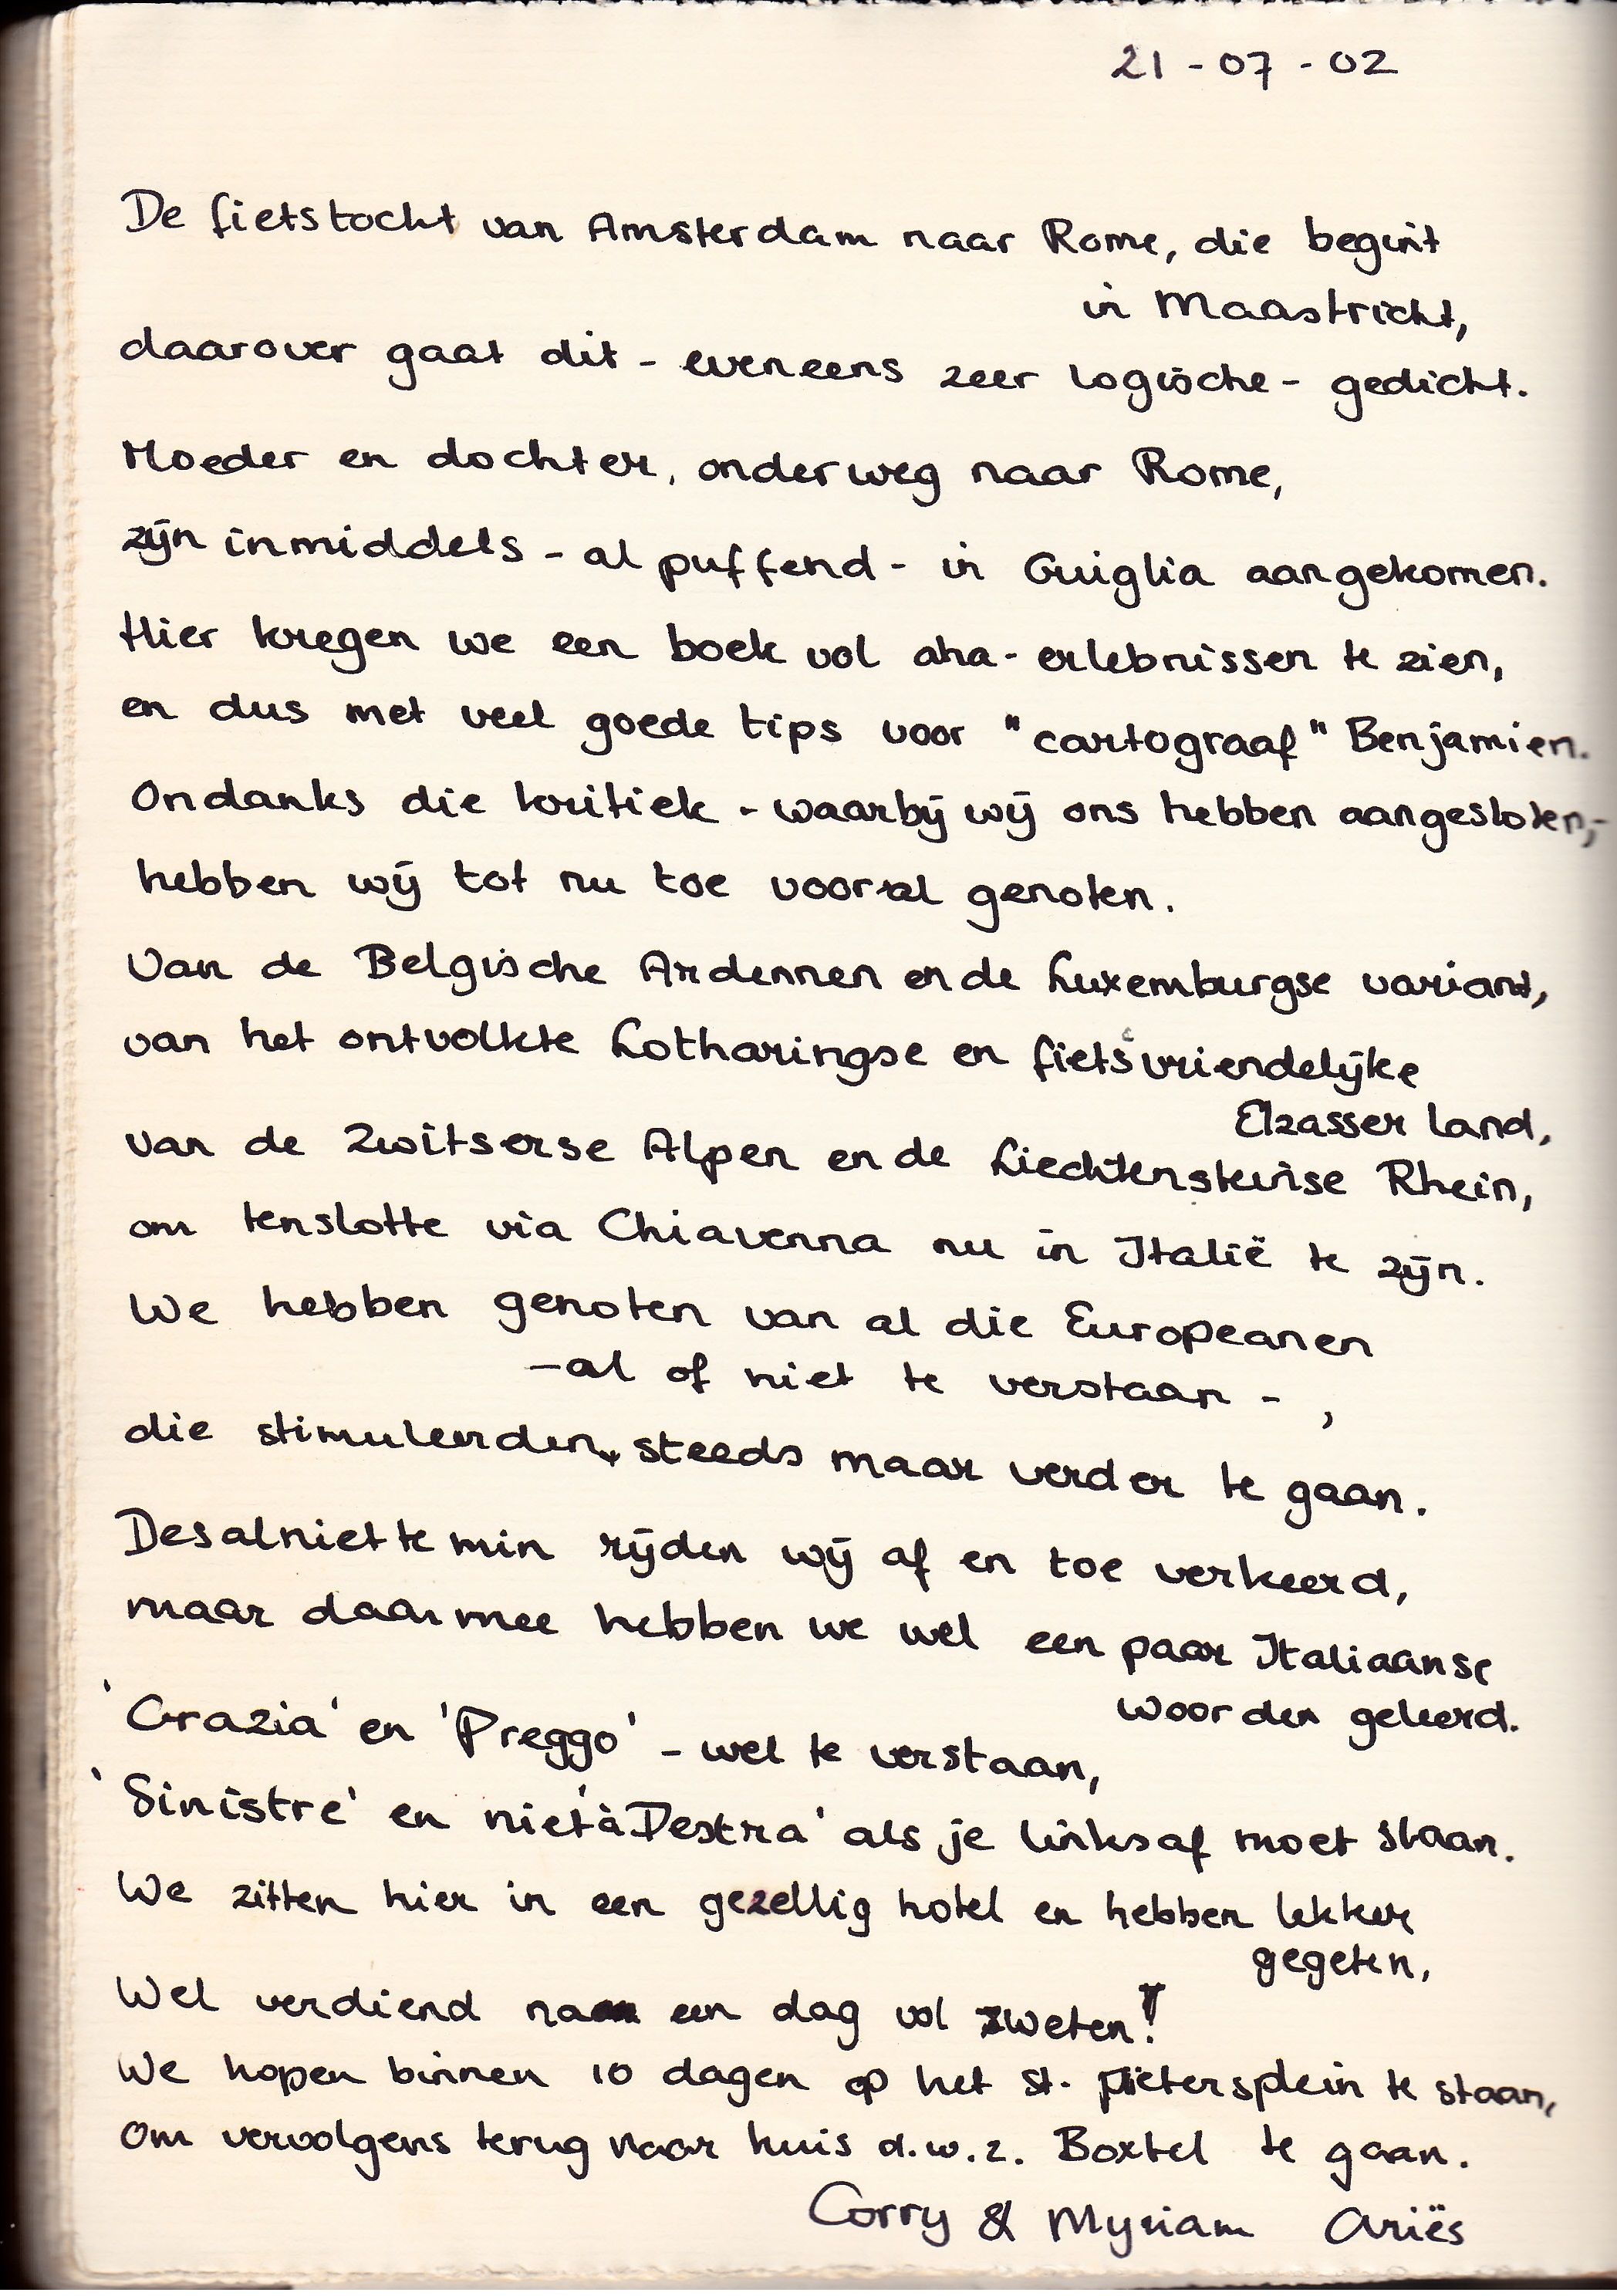 21 - 07 - 02
De fietstocht van Amsterdam naar Rome, die begint
in Maastricht,
daarover gaat dit - eveneens zeer logische - gedicht.
Moeder en dochter, onderweg naar Rome,
zijn inmiddels - al puffend - in Guiglia aangekomen.
Hier kregen we een boek vol aha-erlebnissen te zien,
en dus met veel goede tips voor "cartograaf" Benjamien.
Ondanks die kritiek - waarbij wij ons hebben aangesloten,-
hebben wij tot nu toe vooral genoten.
Van de Belgische Ardennen en de Luxemburgse variant,
van het ontvolkte Lotharingse en fietsvriendelijke
Elzasser land,
van de Zwitserse Alpen en de Liechtensteinse Rhein,
om tenslotte via Chiavenna nu in Italië te zijn.
We hebben genoten van al die Europeanen
-al of niet te verstaan - ,
die stimuleerden, steeds maar verder te gaan.
Desalniettemin rijden wij af en toe verkeerd,
maar daarmee hebben we wel een paar Italiaanse
woorden geleerd.
'Grazia' en 'Preggo' - wel te verstaan,
'Sinistre' en niet 'à Dextra' als je linksaf moet slaan.
We zitten hier in een gezellig hotel en hebben lekker
gegeten,
Wel verdiend na een dag vol zweten!
We hopen binnen 10 dagen op het St. Pietersplein te staan,
Om vervolgens terug naar huis d.w.z. Boxtel te gaan.
Corry & Myriam Ariës